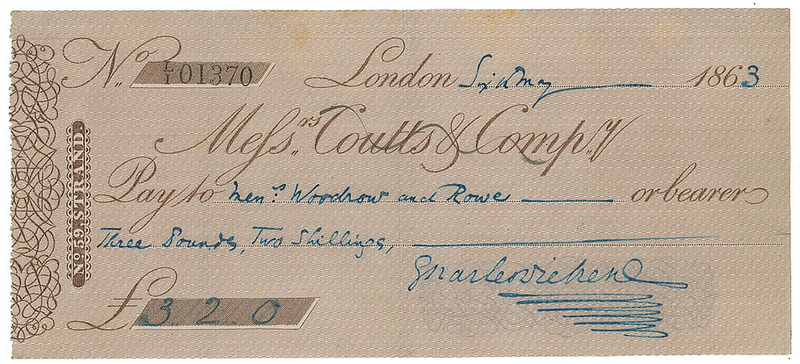 No. L/1 01370 London Six May 1863
Messrs. Coutts & Compy.
Pay to Messrs. Woodrow and Rowe or bearer
Three Pounds, Two Shillings,
Charles Dickens
£ 3. 2. 0
No 59, STRAND.